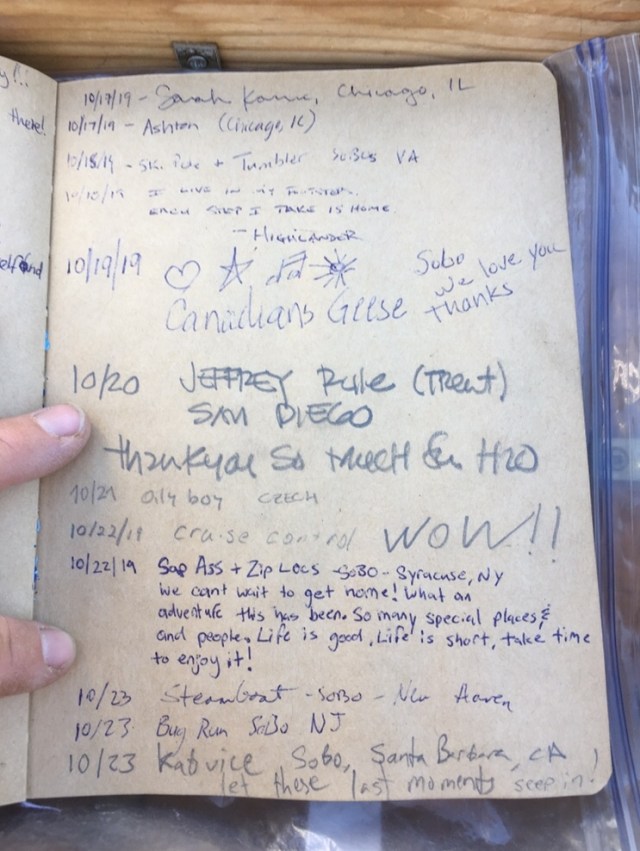 y!!
there!
10/17/19 - Sarah Chicago, IL
10/17/19 - Ashton (Chicago, IL)
10/18/19 - Ski Pole + Tumbler SoBos VA
I LIVE IN MY FOOTSTEPS.
EACH STEP I TAKE IS HOME.
- HIGHLANDER
10/19/19
Sobo
we love you
thanks
Canadians Geese
10/20 JEFFREY Rule (Treat)
SAN DIEGO
thankyou so mUCH for H2O
10/21 oily boy CZECH
10/22/19 cruise control WOW!!
10/22/19 Sap Ass + Zip Locs - SOBO - Syracuse, NY
We cant wait to get home! What an
adventure this has been. So many special places &
and people. Life is good, Life is short, take time
to enjoy it!
10/23 Steamboat - SOBO - New Haven
10/23 Bug Run SoBo NJ
10/23 Katvice Sobo, Santa Barbara, CA
let these last moments seep in!